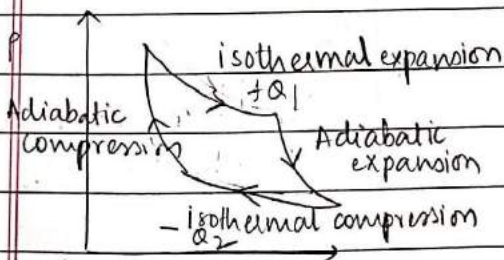 P
isothermal expansion
+Q1
Adiabatic
compression
Adiabatic
expansion
isothermal compression
-Q2